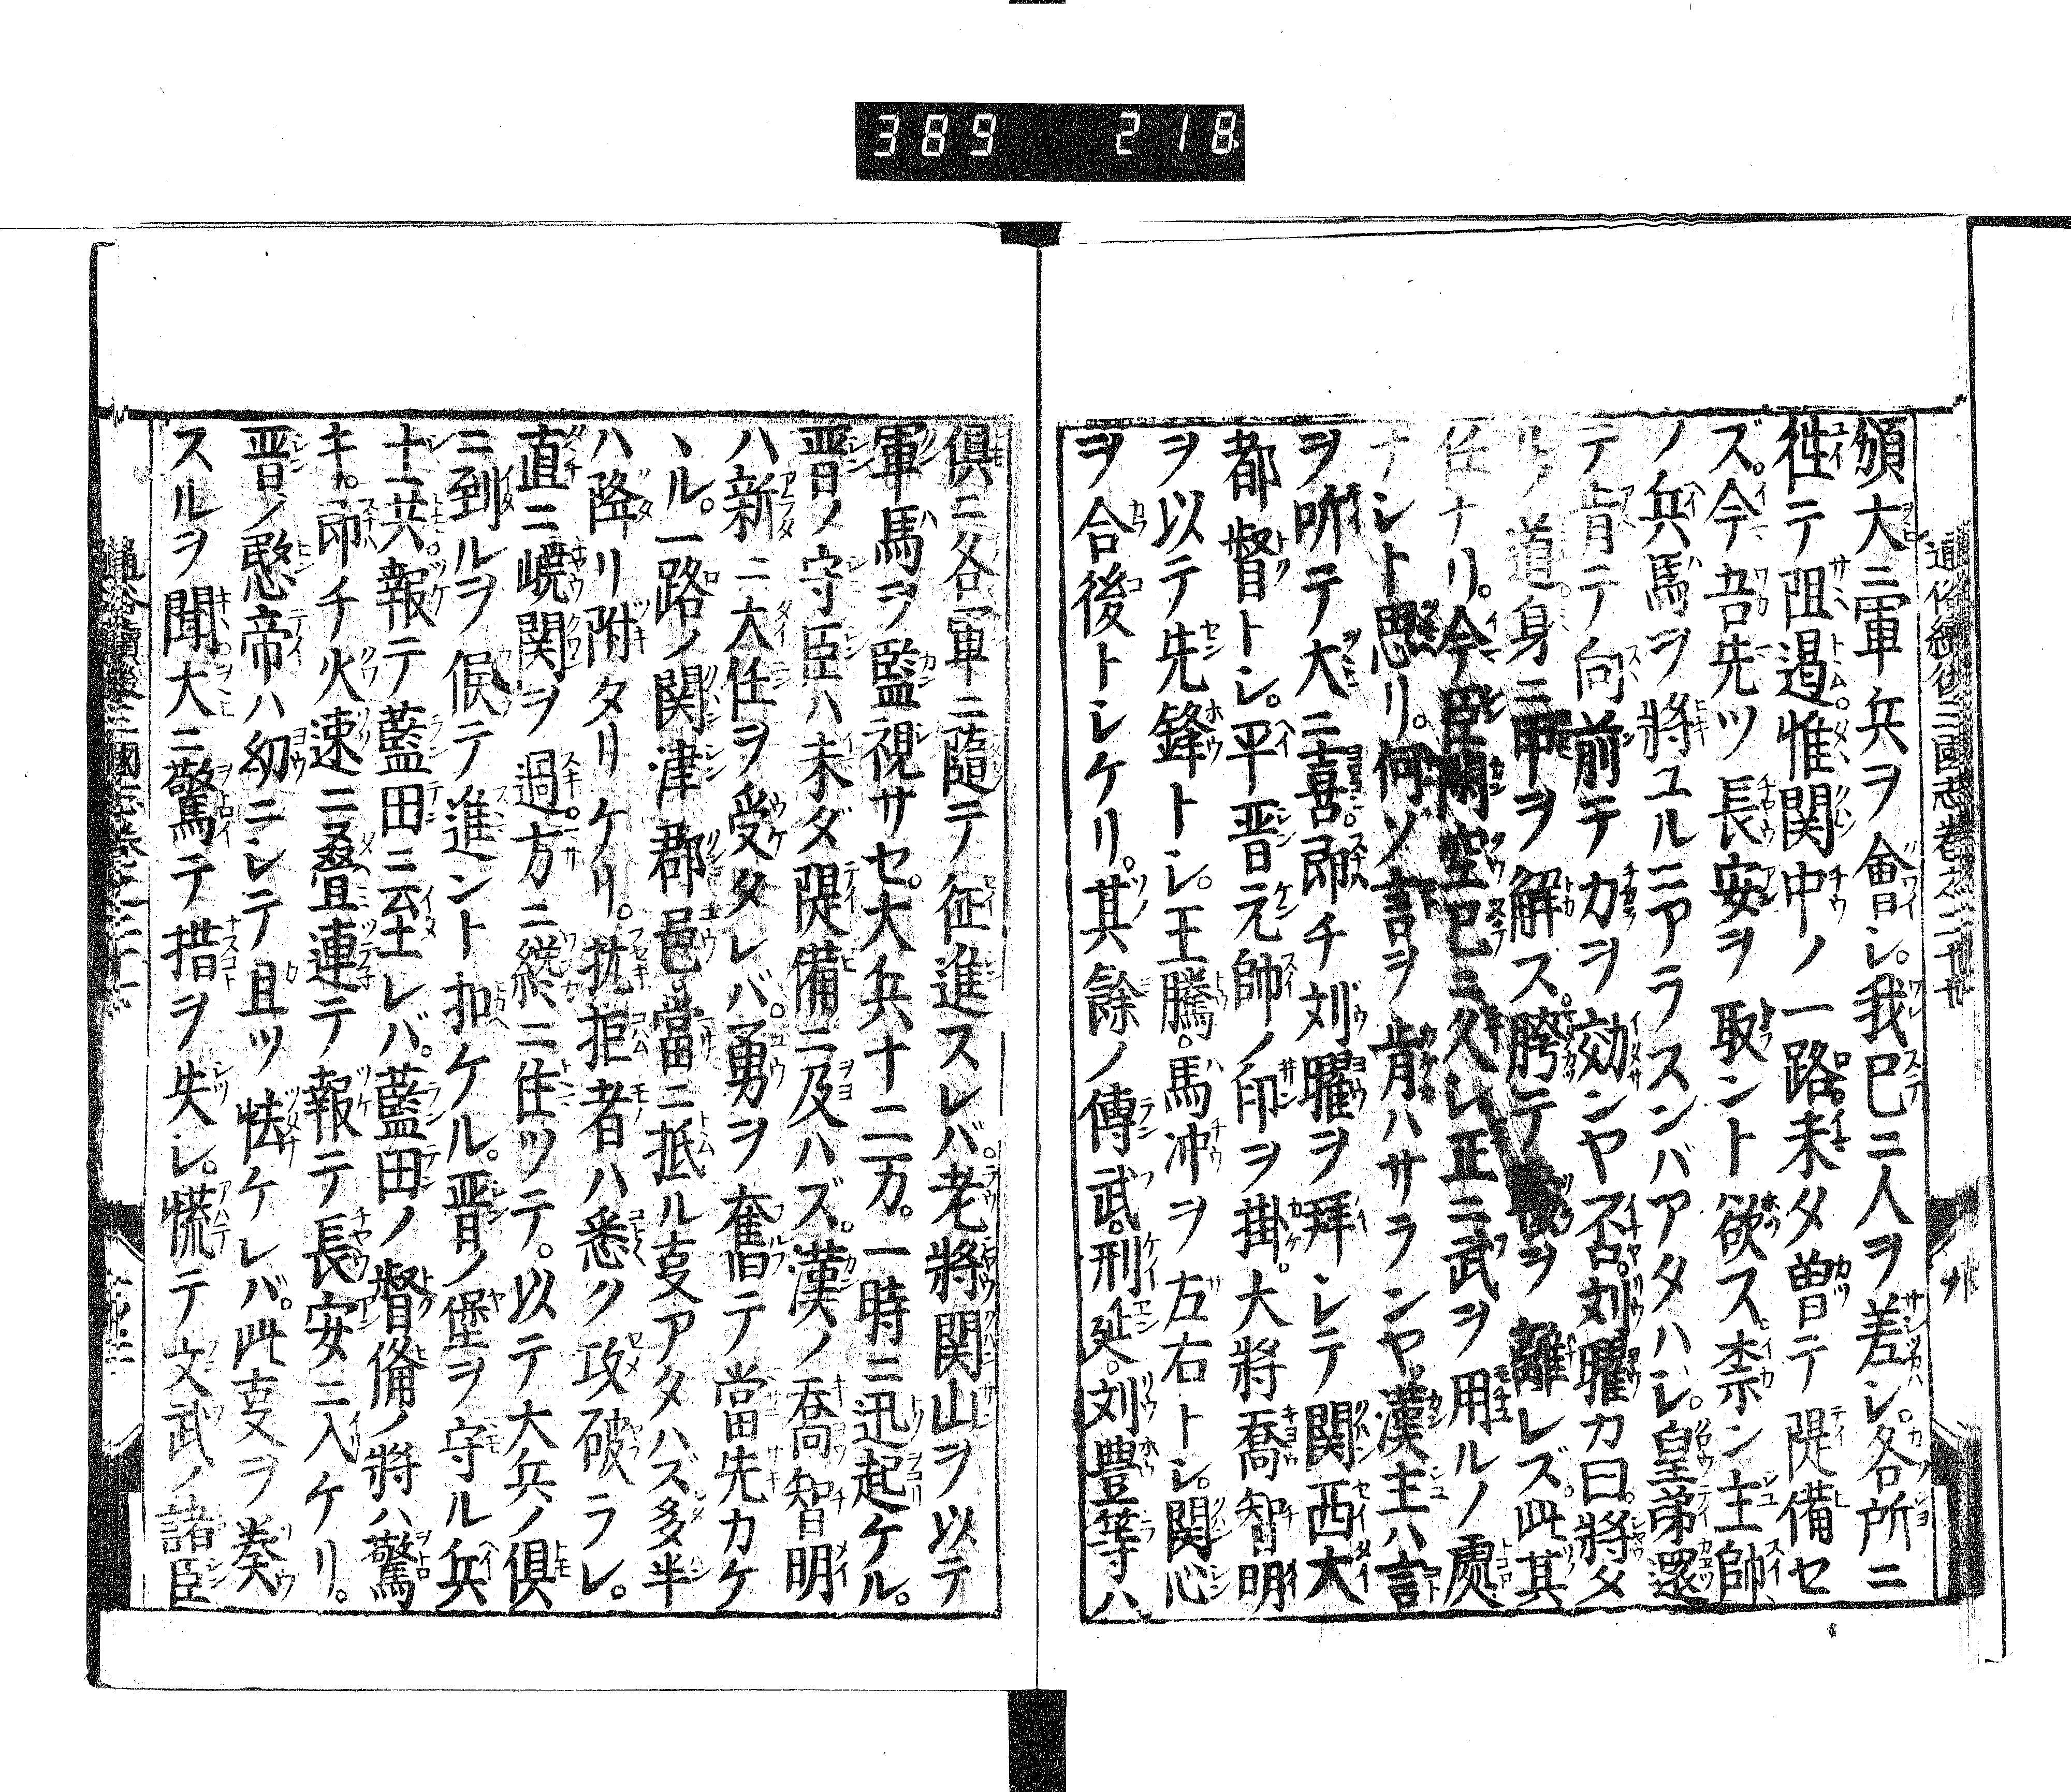 389 218
頒大ニ軍兵ヲ會シ。我已ニ人ヲ差シ。各所ニ
徃テ阻遏。惟関中ノ一路。未タ曽テ隄備セ
ズ。今吾先ツ長安ヲ取ント欲ス柰ン主帥
ノ兵馬ヲ將ユルニアラスンバアタハシ。皇弟還
テ肯テ向前テ力ヲ効ンヤ不。刘曜カ曰。將タ
ルノ道身ニ甲ヲ解ス。胯テ ヲ離レズ。此其
任ナリ。今臣閑空已ニ久レ正ニ武ヲ用ルノ處
ナシト思リ。何ソ言ヲ肯ハサランヤ。漢主ハ言
ヲ听テ大ニ喜。即チ刘曜ヲ拜シテ関西大
都督トシ。平晋元帥ノ印ヲ掛。大將喬智明
ヲ以テ先鋒トシ。王騰。馬冲ヲ左右トシ。関心
ヲ合後トシケリ。其餘ノ傳武。刑延。刘豊等ハ
俱ニ各軍ニ隨テ征進スレバ。老將関山ヲ以テ
軍馬ヲ監視サセ。大兵十二万。一時ニ迅起ケル。
晋ノ守臣ハ未ダ隄備ニ及ハズ。漢ノ喬智明
ハ新ニ大任ヲ受タレバ。勇ヲ奮テ當先カケ
ヽル。一路ノ関津郡邑。當ニ抵ル叓アタハズ。多半
ハ降リ附タリケリ。抗拒者ハ悉ク攻破ラレ。
直ニ嶢関ヲ過。方ニ 二住ツテ。以テ大兵ノ俱
ニ到ルヲ候テ進ント扣ケル。晋ノ堡ヲ守ル兵
士共。報テ藍田ニ云レバ。藍田ノ督偹ノ將ハ驚
キ。即チ火速ニ疊連テ報テ長安ニ入ケリ。
晋ノ愍帝ハ幼ニシテ且ツ怯ケレバ。此叓ヲ奏
スルヲ聞。大ニ驚テ措ヲ失シ。慌テ文武ノ諸臣